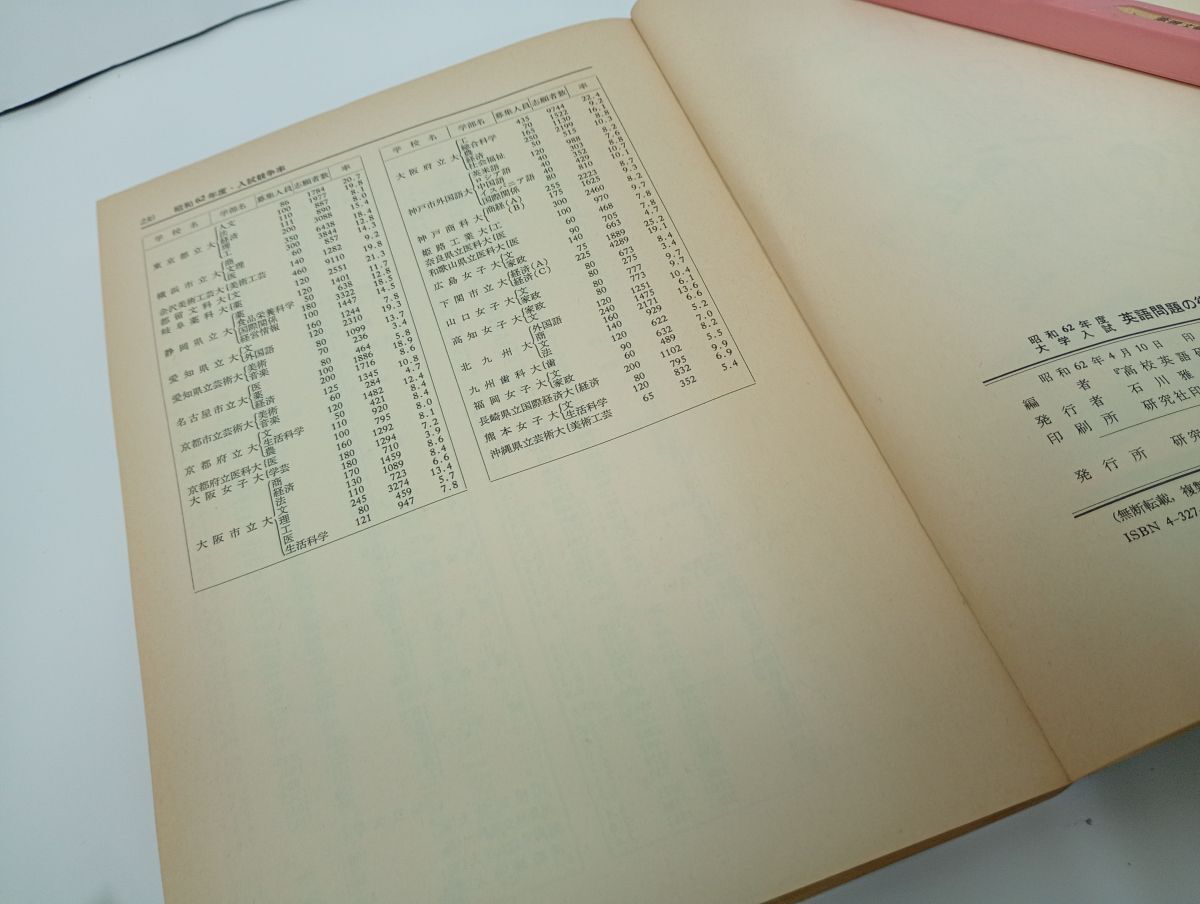 240　昭和62年度・入試競争率
学校名 学部名 募集人員 志願者数 率
東京都立大 人文 86 1784 20.7
法 100 1977 19.8
経済 110 887 8.1
理 111 890 8.0
工 200 3088 15.4
横浜市立大 商 350 6438 18.4
文理 300 3844 12.8
医 60 857 14.3
金沢美術工芸大 美術工芸 140 1282 9.2
都留文科大 文 460 9110 19.8
岐阜薬科大 薬 120 2551 21.3
静岡県立大 薬 120 1401 11.7
食品栄養科学 50 638 12.8
国際関係 180 3322 18.5
経営情報 100 1447 14.5
愛知県立大 文 160 1244 7.8
外国語 120 2310 19.3
愛知県立芸術大 美術 80 1099 13.7
音楽 70 236 3.4
名古屋市立大 医 80 464 5.8
薬 100 1886 18.9
経済 200 1716 8.6
京都市立芸術大 美術 125 1345 10.8
音楽 60 284 4.7
京都府立大 文 120 1482 12.4
生活科学 50 421 8.4
農 110 920 8.4
京都府立医科大 医 100 795 8.0
大阪女子大 学芸 160 1292 8.1
大阪市立大 商 180 1294 7.2
経済 180 710 3.9
法 170 1459 8.6
文 130 1089 8.4
理 110 723 6.6
工 245 3274 13.4
医 80 459 5.7
生活科学 121 947 7.8
学校名 学部名 募集人員 志願者数 率
大阪府立大 工 435 9744 22.4
総合科学 165 1522 9.2
農 70 1130 16.1
経済 250 2199 8.8
社会福祉 50 515 10.3
神戸市外国語大 英米語 120 988 8.2
ロシア語 40 303 7.6
中国語 40 352 8.8
イスパニア語 40 429 10.7
国際関係 80 810 10.1
神戸商科大 商経(A) 255 2223 8.7
(B) 175 1625 9.3
姫路工業大 工 300 2460 8.2
奈良県立医科大 医 100 970 9.7
和歌山県立医大 医 60 468 7.8
広島女子大 文 90 705 7.8
家政 140 663 4.7
下関市立大 経済(A) 75 1889 25.2
経済(C) 225 4289 19.1
山口女子大 文 80 673 8.4
家政 80 275 3.4
高知女子大 文 80 777 9.7
家政 80 773 9.7
北九州大 文 120 1251 10.4
外国語 240 1475 6.1
商 160 2171 13.6
法 140 929 6.6
九州歯科大 歯 120 622 5.2
福岡女子大 文 90 632 7.0
家政 60 489 8.2
長崎県立国際経済大 経済 200 1102 5.5
熊本女子大 文 80 795 9.9
生活科学 120 832 6.9
沖縄県立芸術大 美術工芸 65 352 5.4
昭和62年度
大学入試 英語問題の
昭和62年4月10日 印
編者 『高校英語
発行者 石川雅
印刷所 研究社印
発行所 研究
(無断転載，複製
ISBN 4-327-